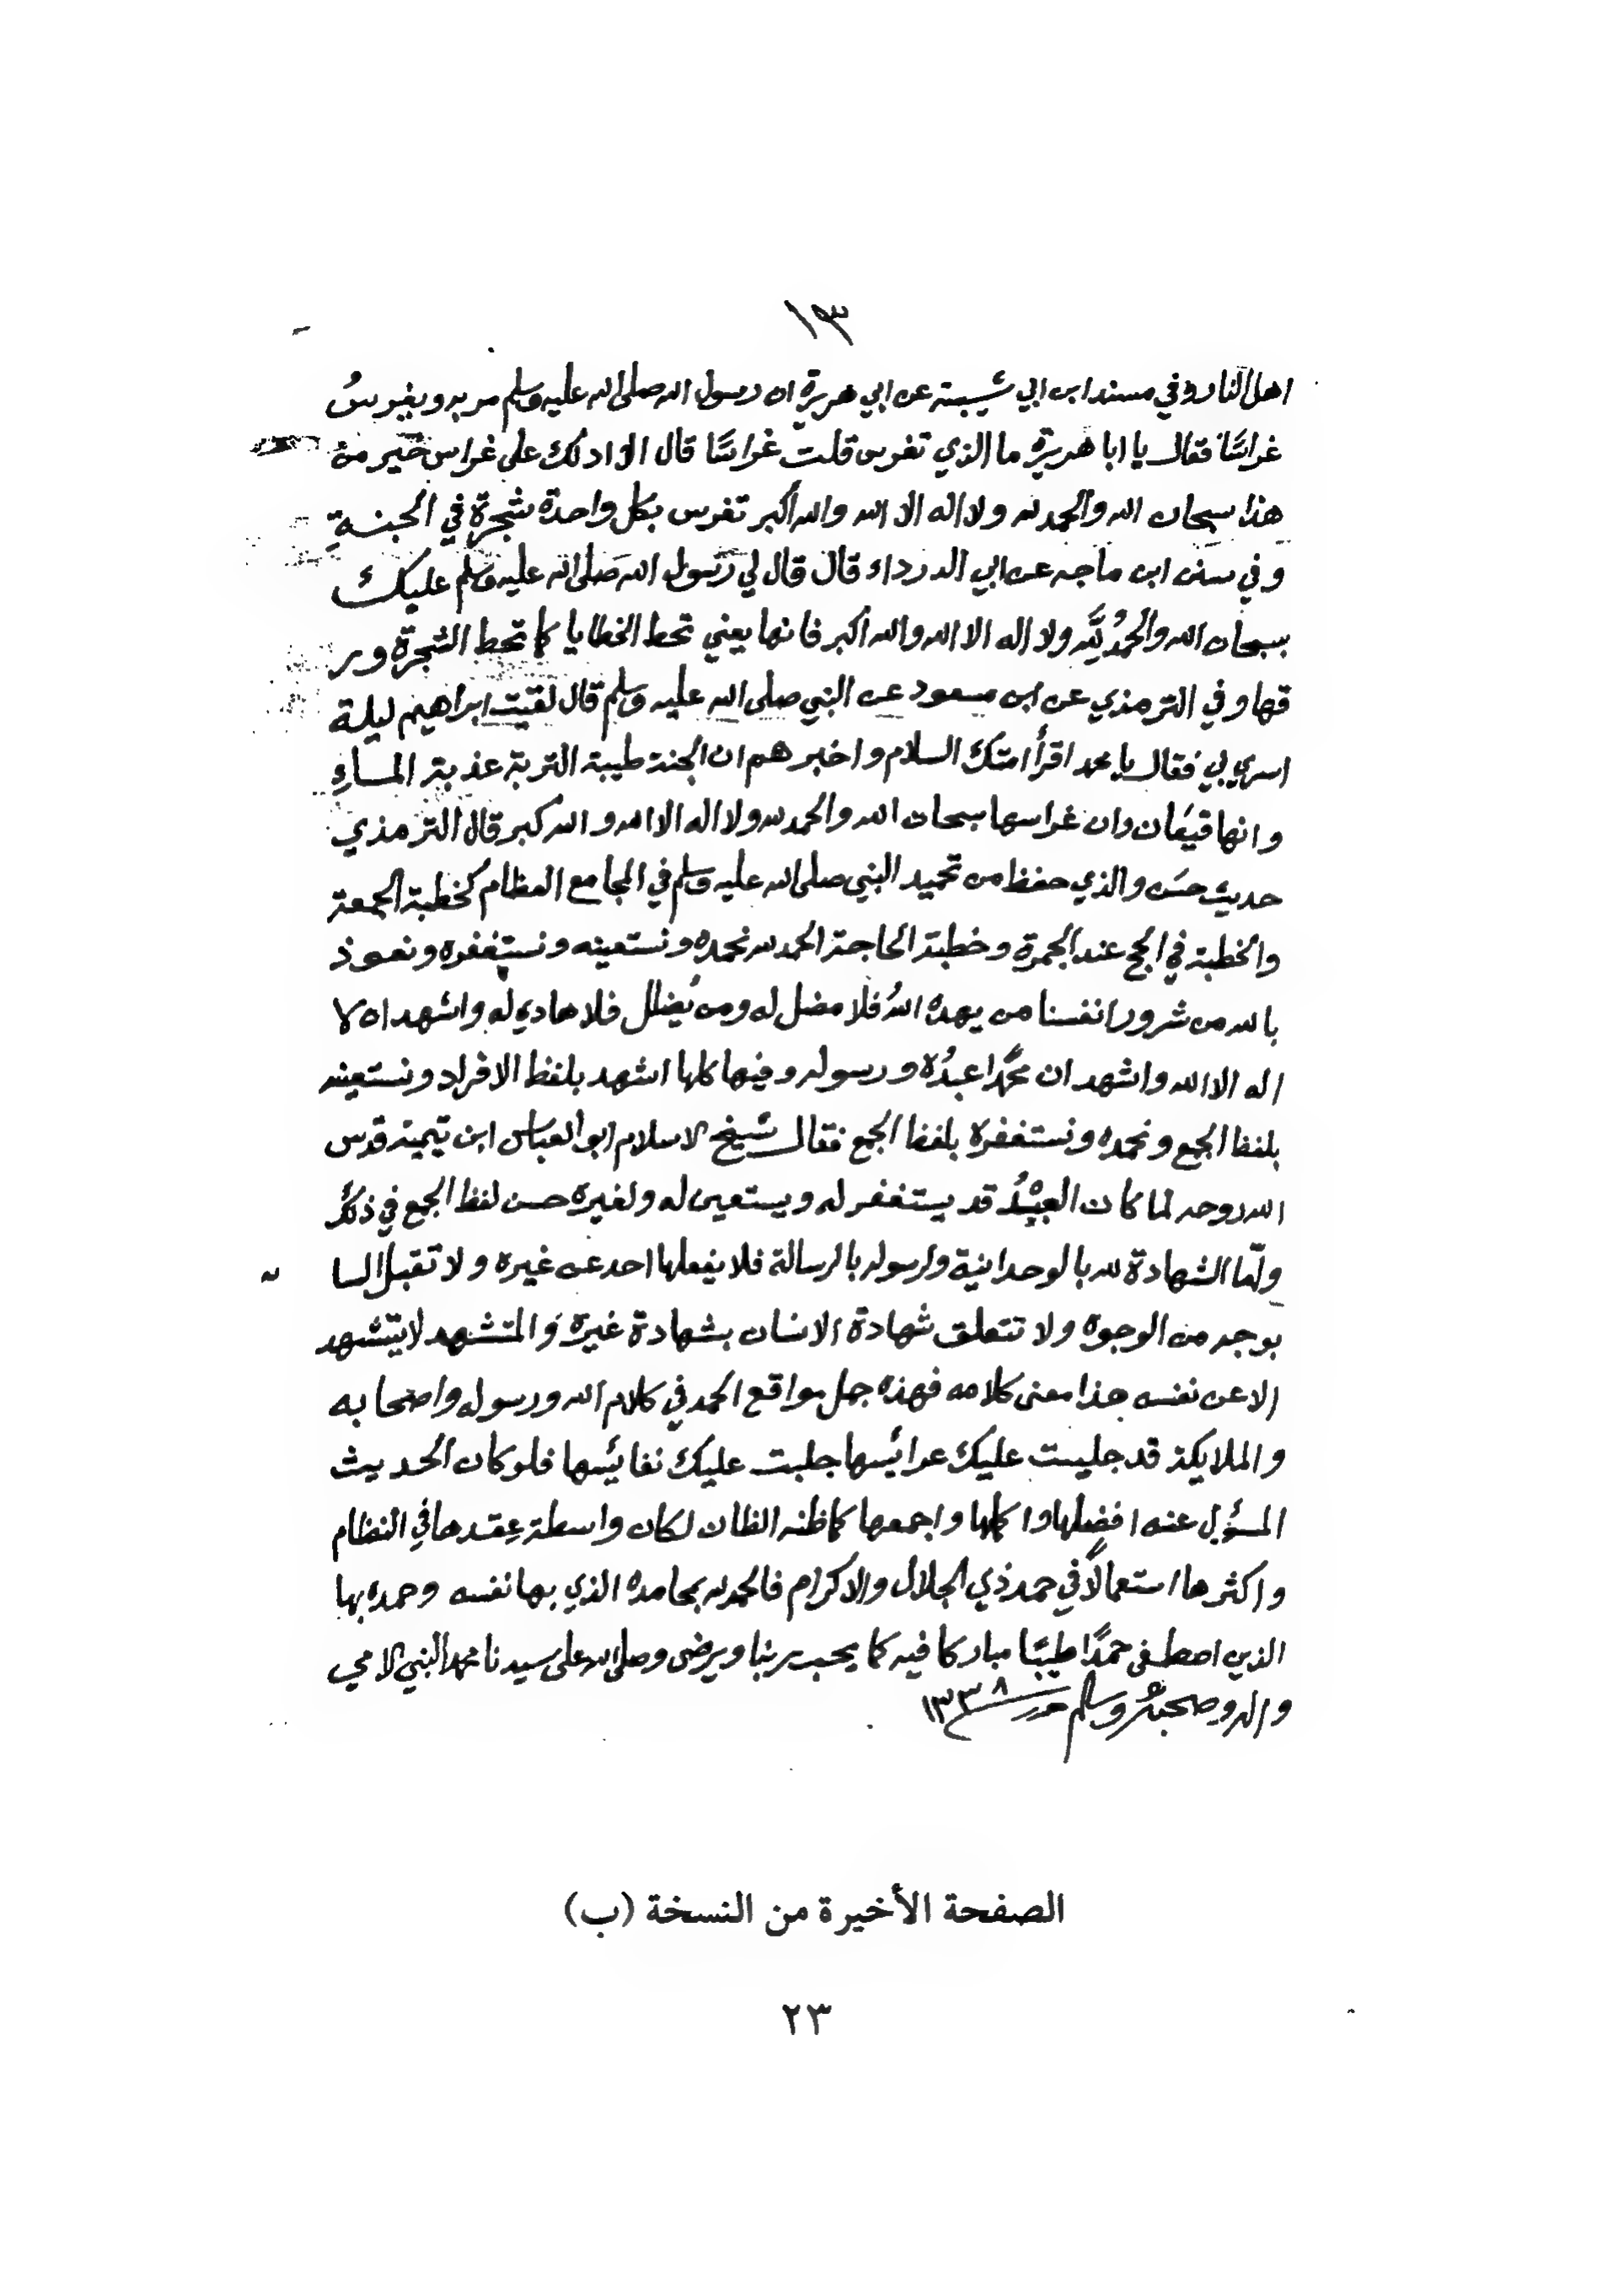 ١٣
اهل النار وفي مسند ابن ابي شيبة عن ابي هريرة ان رسول الله صلى الله عليه وسلم مر به وهو يغرسُ
غراسًا فقال يا ابا هريرة ما الذي تغرس قلت غراسًا قال الا ادلك على غراس خير من
هذا سبحان الله والحمد لله ولا اله الا الله والله أكبر تغرس بكل واحدة شجرة في الجنةِ
وفي سنن ابن ماجه عن ابي الدرداء قال قال لي رَسول الله صَلى الله عليه وسلم عليك
بسبحان الله والحمدُ لِلَّه ولا اله الا الله والله اكبر فانها يعني تحط الخطايا كما تحط الشجرة ور
قها وفي الترمذي عن ابن مسعود عن النبي صلى الله عليه وسلم قال لقيت ابراهيم ليلة
اسري بي فقال يا محمد اقرأ امتك السلام واخبرهم ان الجنة طيبة التربة عذبة المــاءِ
وانها قيعَان وان غراسها سبحان الله والحمد لله ولا اله الا الله والله كبر قال الترمذي
حديث حسَن والذي حفظ من تحميد النبي صلى الله عليه وسلم في المجامع العظام كخطبة الجمعة
والخطبة في الحج عند الجمرة وخطبة الحاجة الحمد لله نحمده ونستعينه ونستغفره ونعوذ
بالله من شرور انفسنا من يهده اللهُ فلا مضل له ومن يُضلل فلا هادي له واشهد ان لا
اله الا الله واشهد ان محمدًا عبدُه ورسوله وفيها كلها اشهد بلفظ الافراد ونستعينه
بلفظ الجمع ونحمده ونستغفره بلفظ الجمع فقال شيخ الاسلام ابو العباس ابن تيمية قدس
الله روحه لما كان العبْدُ قد يستغفر له ويستعين له ولغيره حسن لفظ الجمع في ذلكُ
ولمّا الشهادة لله بالوحدانية ولرسوله بالرسالة فلا يفعلها احد عن غيره ولا تقبل السا
بوجه من الوجوه ولا تتعلق شهادة الانسان بشهادة غيره وَالمتشهد لا يتشهد
الا عن نفسه هذا معنى كلامه فهذه جمل مواقع الحمد في كلام الله ورسوله واصحابه
والملايكة قد جليت عليك عرائسها جلبت عليك نفائسها فلو كان الحديث
المسؤل عنه افضلها واكملها واجمعها كما ظنه الظان لكان واسطة عِقدها في النظام
واكثرها استعمالًا في حمد ذي الجلال والاكرام فالحمد لله بمحامده الذي بها نفسه وحمده بها
الذين اصطفى حمدًا طيبًا مباركا فيه كما يحب ربنا ويرضى وصلى الله على سيدنا محمد النبي الامي
واله وصحبه وسلم ١٣٣٨
الصفحة الأخيرة من النسخة (ب)
٢٣